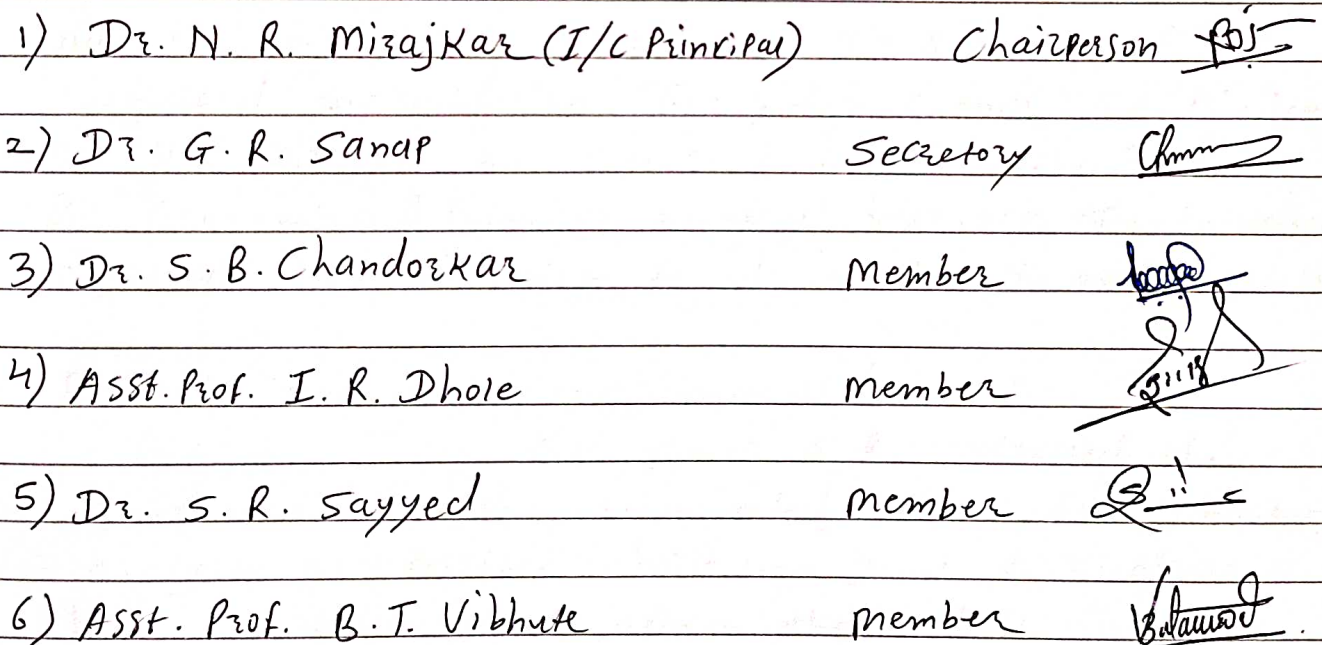 1) Dr. N. R. Mirajkar (I/C Principal) Chairperson
2) Dr. G. R. Sanap Secretory
3) Dr. S. B. Chandorkar Member
4) Asst. Prof. I. R. Dhole member
5) Dr. S. R. Sayyed member
6) Asst. Prof. B. T. Vibhute member